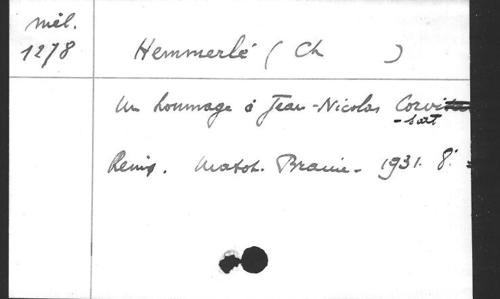 Mél.
1278
Hemmerlé (Ch )
Un hommage à Jean-Nicolas Corvi
-sart
Reims. Matot. Braine. 1931. 8°.